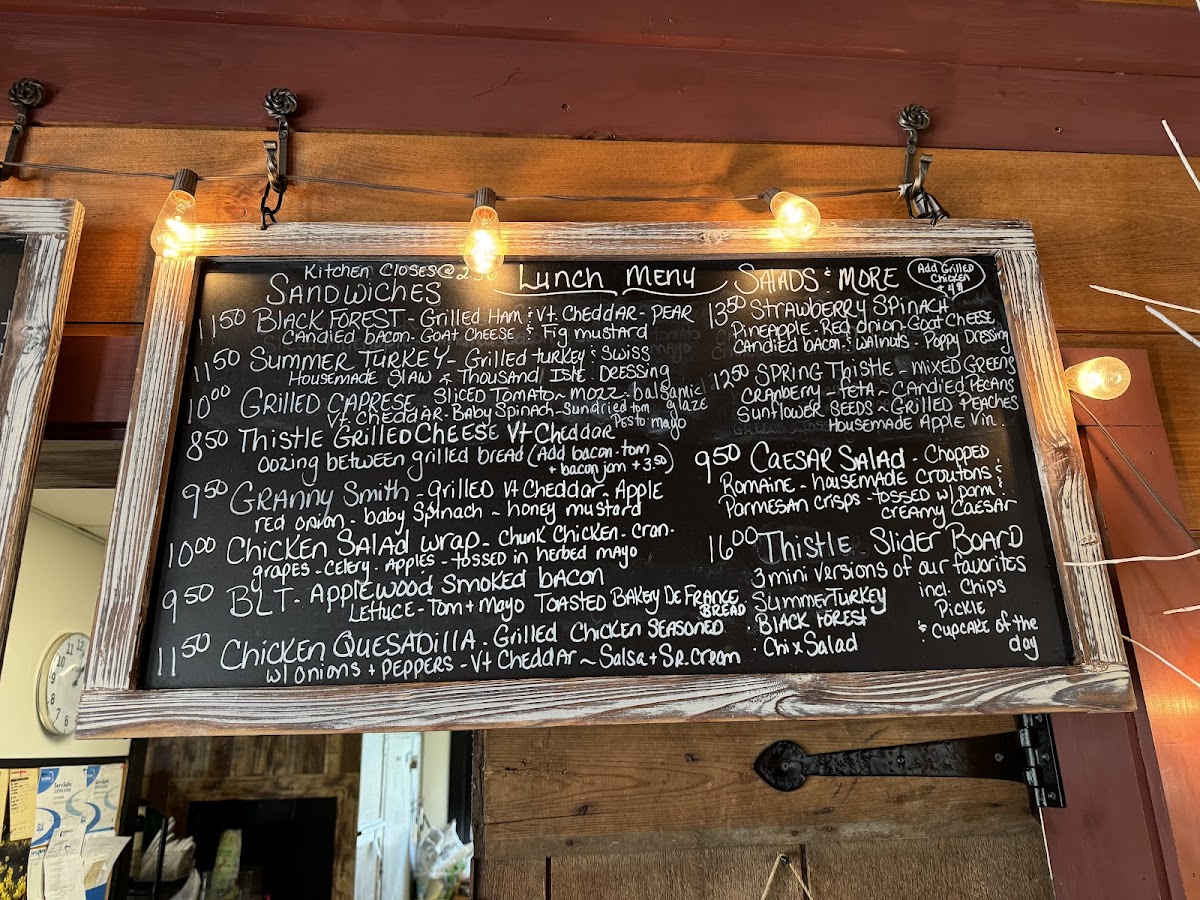 Kitchen Closes @ 2
Lunch Menu
SANDWICHES
11 50 BLACK FOREST - Grilled Ham & Vt. Cheddar - PEAR
CANDIED BACON - GOAT CHEESE & Fig mustard
11 50 SUMMER TURKEY - Grilled turkey & Swiss
HOUSEMADE SLAW & THOUSAND ISLE. DRESSING
10 00 GRILLED CAPRESE - Sliced Tomato ~ MOZZ - balsamic
glaze
Vt CHEDDAR - Baby Spinach - sundried tom
Pesto mayo
8 50 Thistle GRILLED CHEESE Vt Cheddar
oozing between grilled bread (Add bacon - tom
+ bacon jam + 3 50)
9 50 GRANNY Smith - grillED Vt Cheddar - Apple
red onion - baby Spinach ~ honey mustard
10 00 Chicken SALAD wrap - Chunk Chicken - cran -
grapes - celery - Apples - tossed in herbed mayo
9 50 BLT - Applewood smoked bacon
LETTUCE - Tom + mayo TOASTED BAKEry DE FRANCE
BREAD
11 50 Chicken QUESADILLA - Grilled Chicken SEASONED
w/ onions + PEPPERS - Vt CHEDDAR ~ Salsa + SR. Cream
SALADS & MORE
Add Grilled
Chicken
+ 4
13 50 STRAWBERRY SPINACH
Pineapple - Red onion - Goat CHEESE
Candied bacon & walnuts - Poppy Dressing
12 50 SPRING Thistle - mixED GREENS
CRANBERRY - feta - CANDIED PECANS
Sunflower SEEDS ~ GRILLED PEACHES
HOUSEMADE Apple Vin.
9 50 CAESAR SALAD - Chopped
Romaine - houseMADE croutons &
Parmesan crisps - tossed w/ parm &
creamy CAESAR
16 00 Thistle Slider BOARD
3 mini versions of our favorites
SummerTURKEY
BLACK FOREST
Chix Salad
incl. Chips
Pickle
& Cupcake of the
day